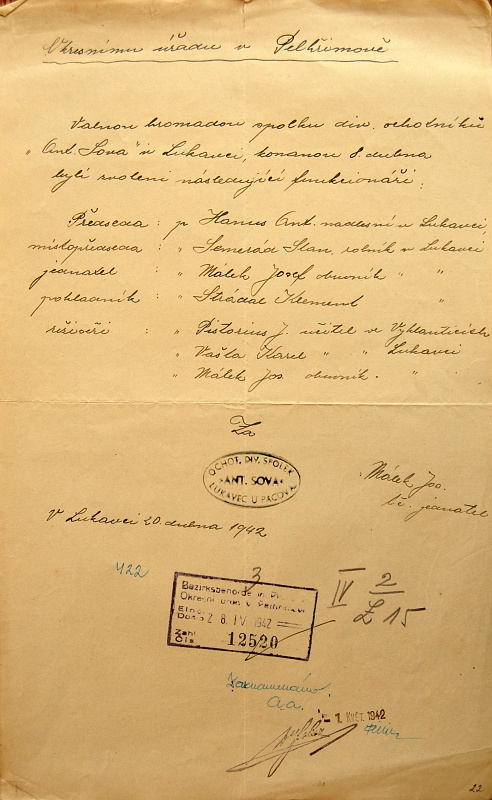 Okresnímu úřadu v Pelhřimově
Valnou hromadou spolku div. ochotníků
„Ant. Sova" v Lukavci, konanou 8. dubna
byli zvoleni následující funkcionáři:
Předseda : p Hanus Ant. nadlesní v Lukavci,
místopředseda : „ Semerád Stan. rolník v Lukavci
jednatel : „ Málek Josef obuvník „ „
pokladník : „ Strádal Klement „
režiséři : „ Pistorius J. učitel ve Vyklanticích
„ Vašta Karel „ „ Lukavci
„ Málek Jos. obuvník. „
Za
OCHOT. DIV. SPOLEK
„ANT. SOVA"
LUKAVEC U PACOVA
Málek Jos.
t.č. jednatel
V Lukavci 20. dubna 1942
422
3
IV 2
Ž 15
Bezirksbehörde in
Okresní úřad v Pelhřimově
Došlo 28. IV. 1942
Zahl
Čís. 12520
Zaznamenáno.
a.a.
- 1. KVĚT. 1942
22